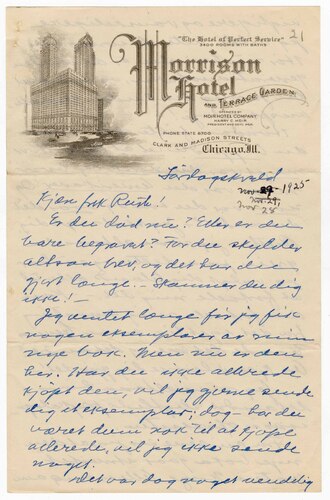 21
"The Hotel of Perfect Service"
3400 ROOMS WITH BATHS
Morrison
Hotel
AND TERRACE GARDEN
OPERATED BY
MOIR HOTEL COMPANY
HARRY C. MOIR
PRESIDENT AND GEN'L MGR.
PHONE STATE 6700
CLARK AND MADISON STREETS
Chicago, Ill.
Lördagskveld
Nov 29 - 1925
Nov. 29,
Nov 28
Kjære frk Rush!
Er du död nu? Eller er du
bare begravet? For du skylder
altsaa brev, og det har du
gjort længe. - Skammer du dig
ikke! -
Jeg ventet længe för jeg fik
nogen eksemplarer av min
nye bok. Men nu er den
her. Har du ikke allerede
kjöpt den, vil jeg gjerne sende
dig et eksemplar; dog har du
været dum nok til at kjöpe
allerede, vil jeg ikke sende
noget.
Det var dog noget